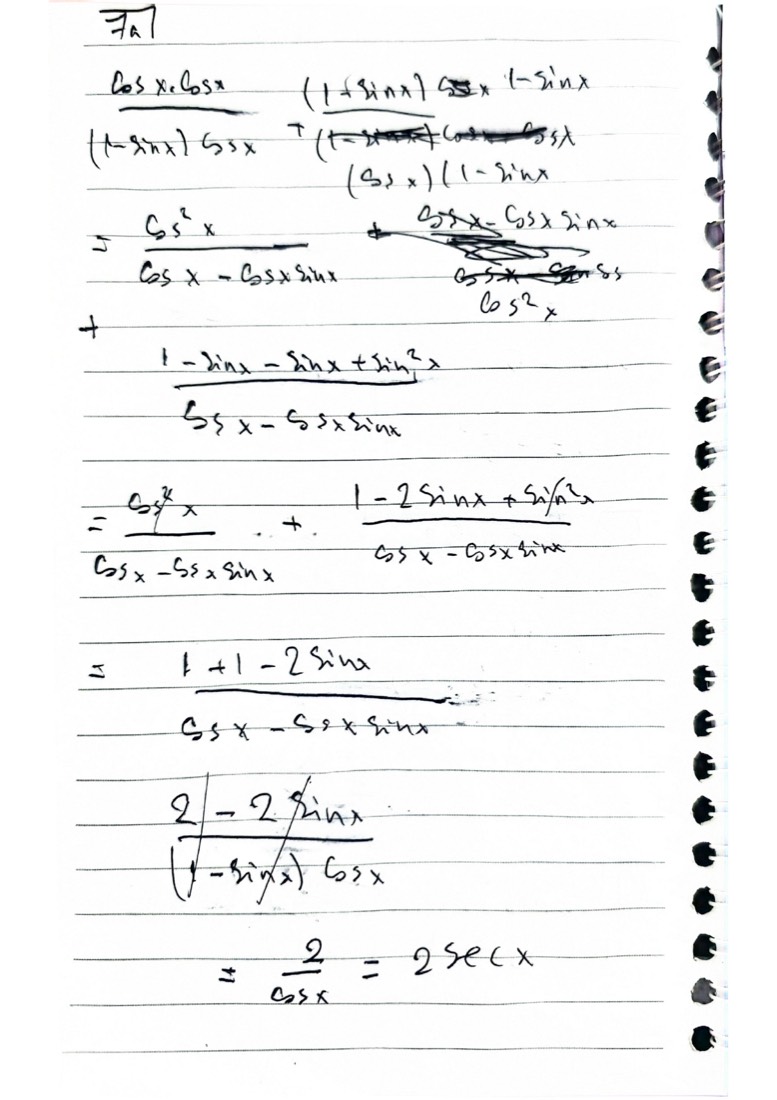 7a)
cos x · cos x / (1 - sin x) cos x + (1 + sin x) 1 - sin x / (cos x)(1 - sin x
= cos² x / cos x - cos x sin x
+
1 - sin x - sin x + sin² x / cos x - cos x sin x
= cos² x / cos x - cos x sin x + 1 - 2 sin x + sin² x / cos x - cos x sin x
= 1 + 1 - 2 sin x / cos x - cos x sin x
2 - 2 sin x / (1 - sin x) cos x
= 2 / cos x = 2 sec x